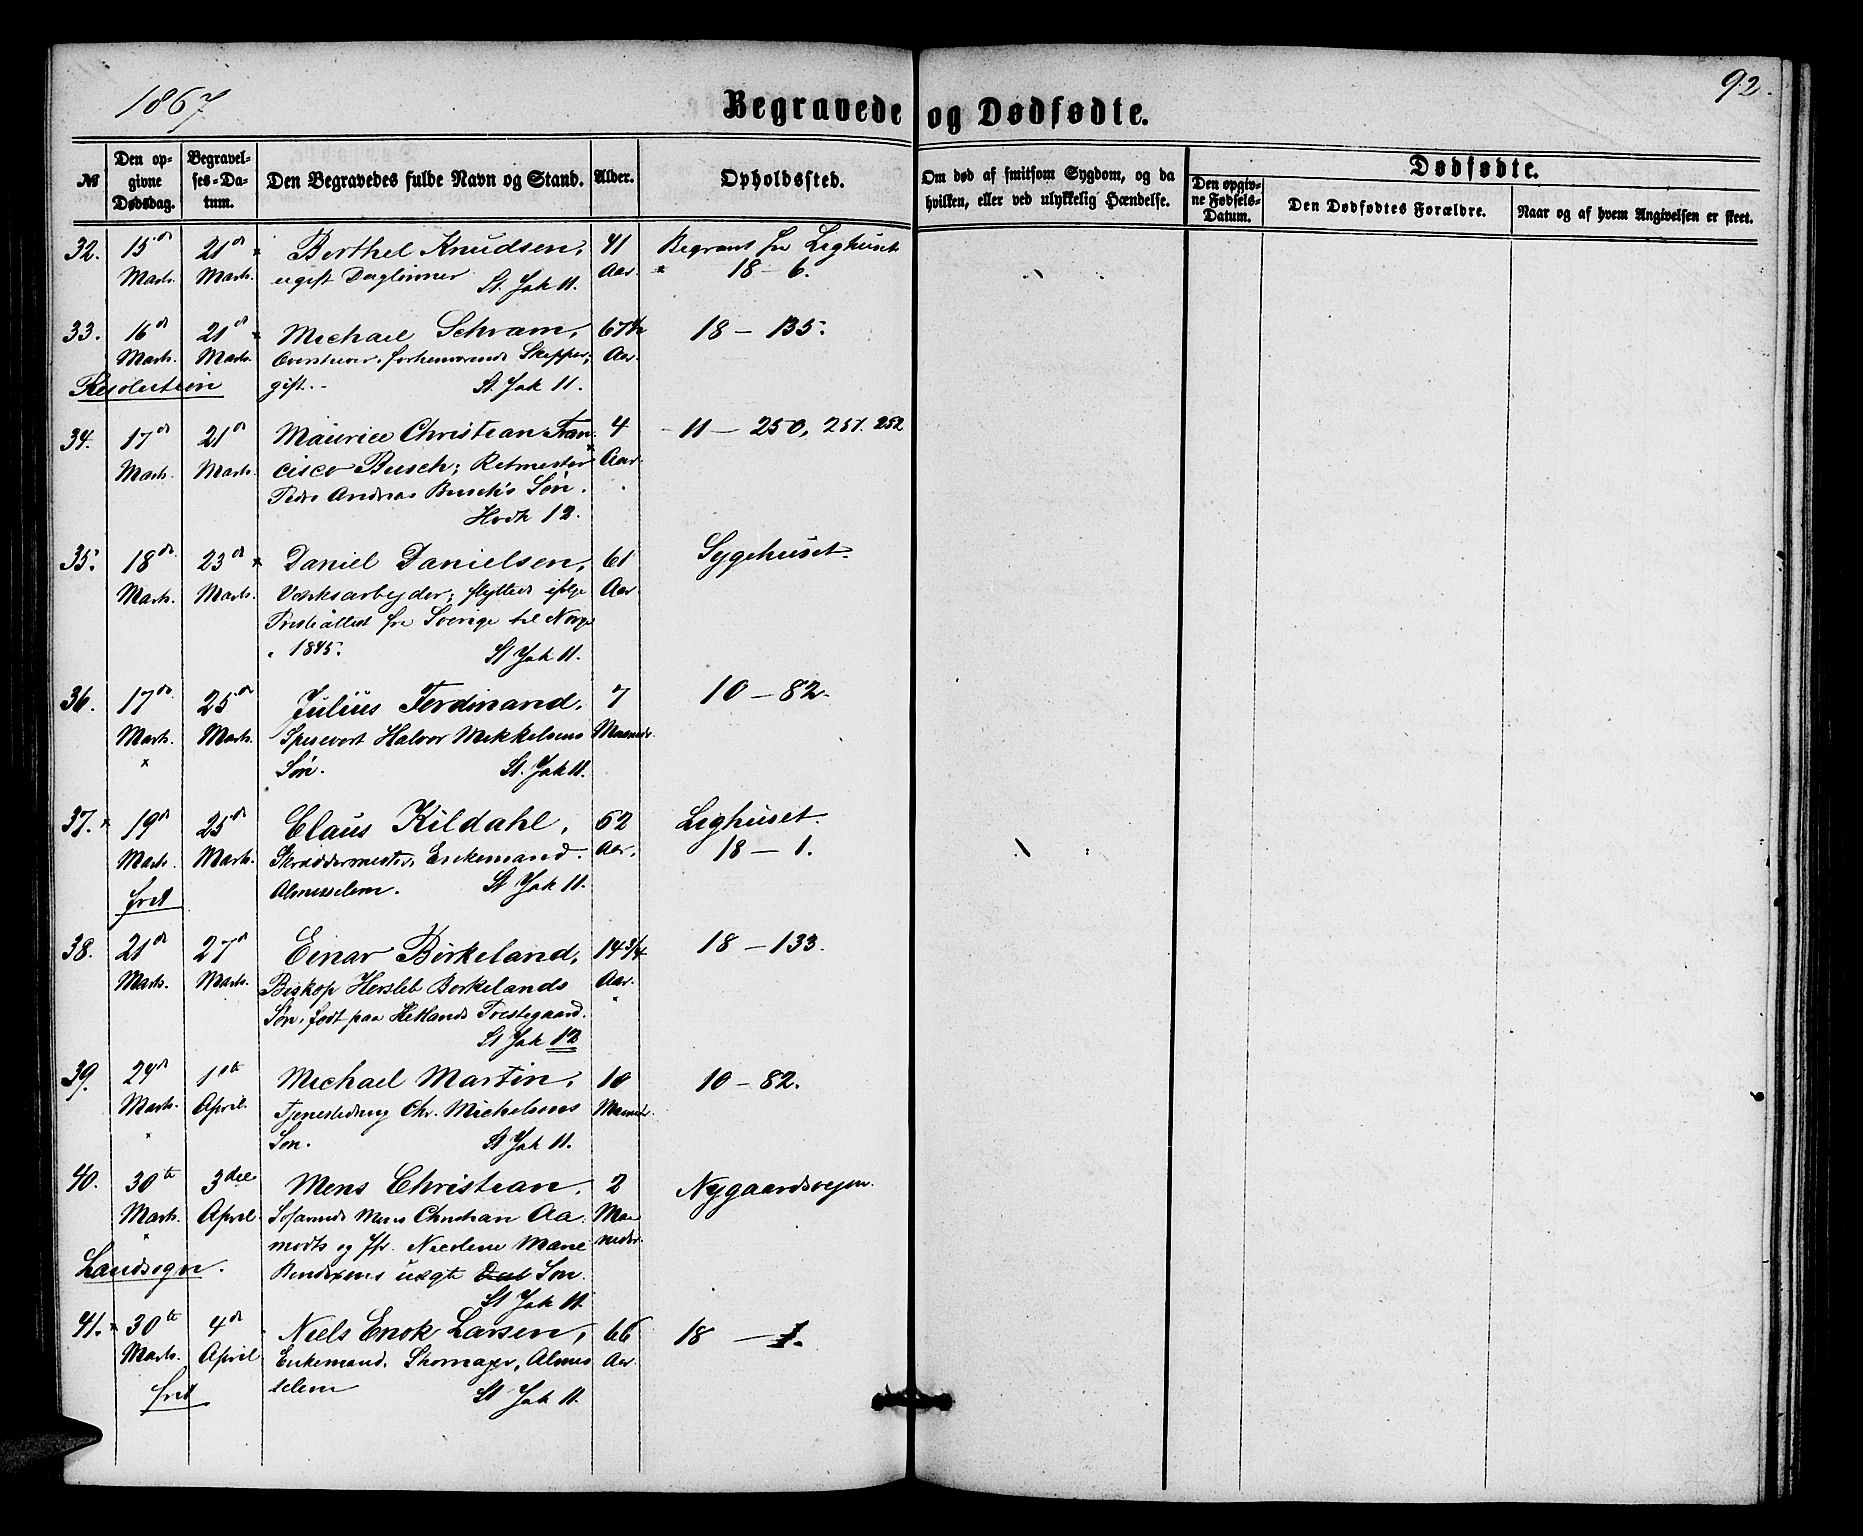 1867
92.
Begravede og Dødfødte.
№
Den op-
givne
Dødsdag.
Begravel-
ses-Da-
tum.
Den Begravedes fulde Navn og Stand.
Alder.
Opholdssted.
Om død af smitsom Sygdom, og da
hvilken, eller ved ulykkelig Hændelse.
Dødfødte.
Den opgiv-
ne Fødsels-
Datum.
Den Dødfødtes Forældre.
Naar og af hvem Angivelsen er skeet.
32. 15de 21de Berthel Knudsen, 41 Begravs fra Lighuset
Marts. Marts. ugift Daglønner Aar 18 – 6.
St. Jak 11.
33. 16de 21de Michael Schram, 67½ 18 – 135.
Marts. Marts. forhenværende Skipper, Aar.
Resolution gift. St. Jak 11.
34. 17de 21de Maurice Christian Fran- 4 11 – 250, 251. 252
Marts. Marts. cisco Busch; Ritmester Aar.
Peder Andreas Busch's Søn.
Hosk 12.
35. 18de 23de Daniel Danielsen, 61 Sygehuset.
Marts. Marts. Værksarbejder; flyttede ifølge Aar
Præsteattest fra Sverige til Norge
1845. St Jak 11.
36. 17de 25de Julius Ferdinand, 7 10 – 82.
Marts. Marts. Spisevert Halvor Mikkelsens Maaneder.
Søn. St. Jak 11.
37. 19de 25de Claus Kildahl, 62 Lighuset.
Marts. Marts. Skræddermester, Enkemand. Aar. 18 – 1.
frit Almisselem. St Jak 11.
38. 21de 27de Einar Birkeland, 14 3/4 18 – 133.
Marts. Marts. Biskop Hersleb Birkelands Aar.
Søn, født paa Hetlands Præstegaard.
St Jak 12
39. 29de 1ste Michael Martin, 10 10 – 82.
Marts. April. Chr. Michelsens Maaneder.
Søn. St Jak 11.
40. 30te 3die Mons Christian, 2 Nygaardsvejen.
Marts. April Mons Christian Aa- Maa-
modts og Nicoline Marie neder.
Landsogn. Bendixens uægte Dat Søn.
St Jak 11.
41. 30te 4de Niels Enok Larsen, 66 18 – 1.
Marts. April Enkemand, Skomager, Almis- Aar
frit selem St Jak 11.